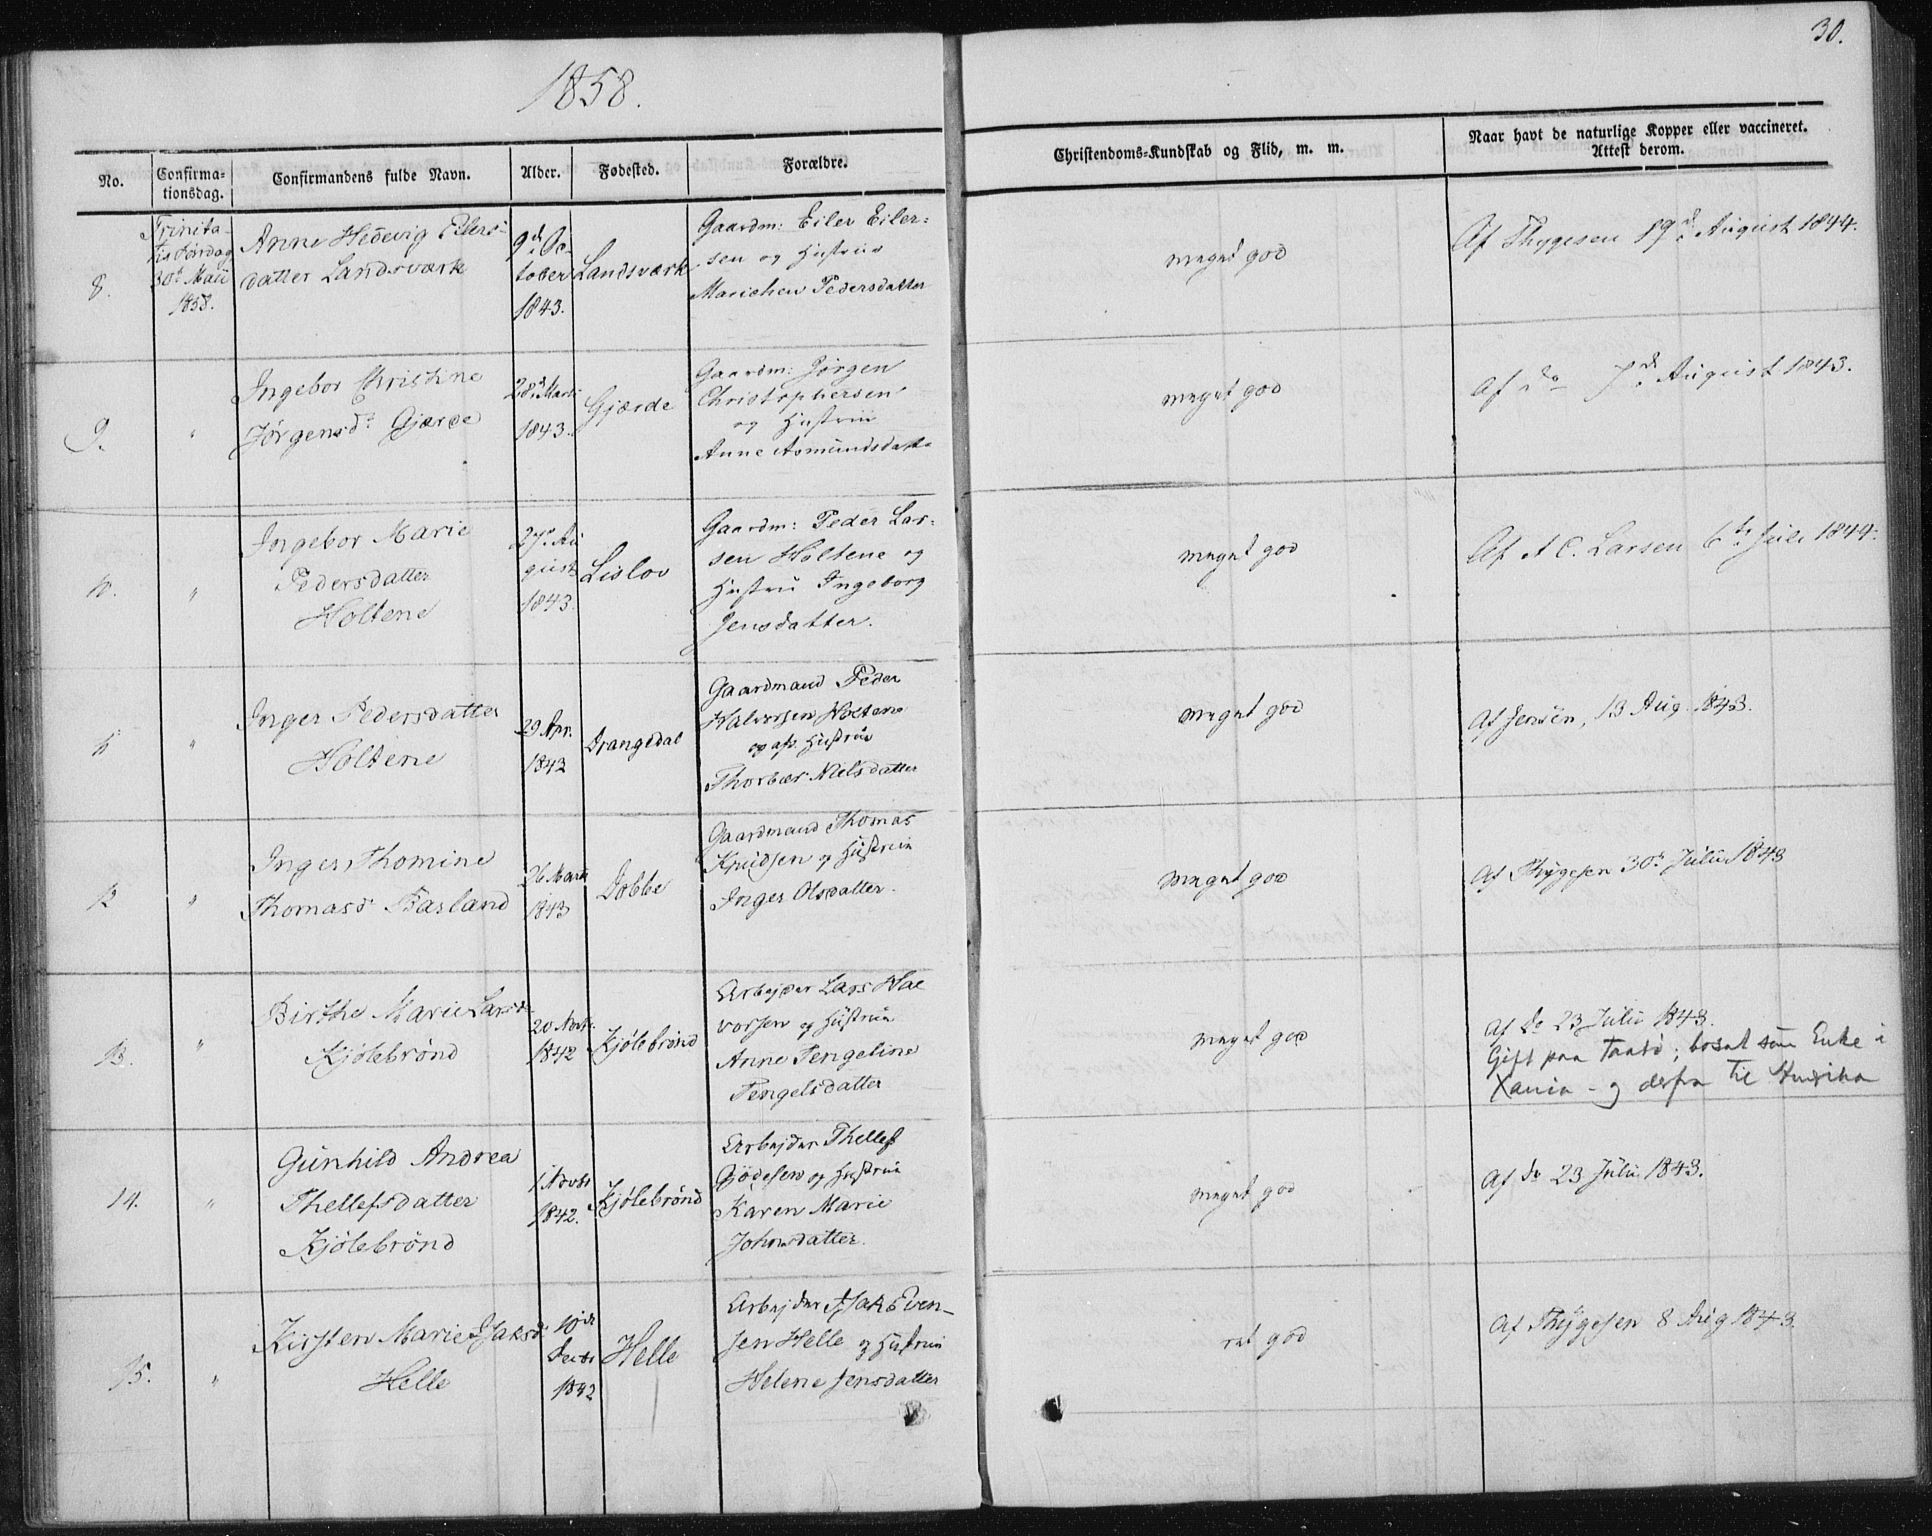 30.
1858.
No.
Confirma-
tionsdag.
Confirmandens fulde Navn.
Alder.
Fødested.
Forældre.
Christendoms-Kundskab og Flid, m. m.
Naar havt de naturlige Kopper eller vaccineret.
Attest derom.
8.
Trinita-
tis Søndag
30t Maii
1858.
Anne Hedevig Eilers-
datter Landsværk
9d Oc-
tober
1843.
Landsværk
Gaardm: Eiler Eiler=
sen og Hustrue
Marichen Pedersdatter
meget god
Af Thygesen 19d August 1844.
9.
"
Ingebor Christine
Jørgensdr Gjærde
28d Marts
1843.
Gjærde
Gaardm: Jørgen
Christophersen
og Hustrue
Anne Asmundsdatter
meget god
Af do 7d August 1843.
10.
"
Ingebor Marie
Pedersdatter
Holtene
27d Au
gust
1843.
Lislov
Gaardm: Peder Lar=
sen Holtene og
Hustru Ingeborg
Jensdatter.
meget god
Af A C. Larsen 6te Juli 1844.
11
"
Inger Pedersdatter
Holtene
29 Apr.
1843
Drangedal
Gaardmand Peder
Halvorsen Holtene
og afs. Hustrue
Thorbær Nielsdatter
meget god
Af Jensen, 13 Aug. 1843.
12
"
Inger Thomine
Thomasd Farland
26 Marts
1843
Dobbe
Gaardmand Thomas
Knudsen og Hustrue
Inger Olsdatter.
meget god
Af Thygesen 30t Juli 1843
13.
"
Birthe Marie Larsdr
Kjølebrønd
20 Novbr.
1842
Kjølebrønd
Arbejder Lars Hal
vorsen og Hustrue
Anne Tengeline
Tengelsdatter
meget god
Af do 23 Juli 1843.
Gift paa Taatø; bosat som Enke i
Xania - og derfra til Amerika
14.
"
Gunhild Andrea
Thellefsdatter
Kjølebrønd
1 Novbr
1842.
Kjølebrønd
Arbejder Thellef
og Hustrue
Karen Marie
Johnsdatter.
meget god
Af do 23 Juli 1843.
15.
"
Kirsten Marie Isaksd
Helle
10de
Decbr
1842
Helle
Arbejder Isak Even-
sen Helle og Hustrue
Helene Jensdatter
ret god
Af Thygesen 8 Aug 1843.